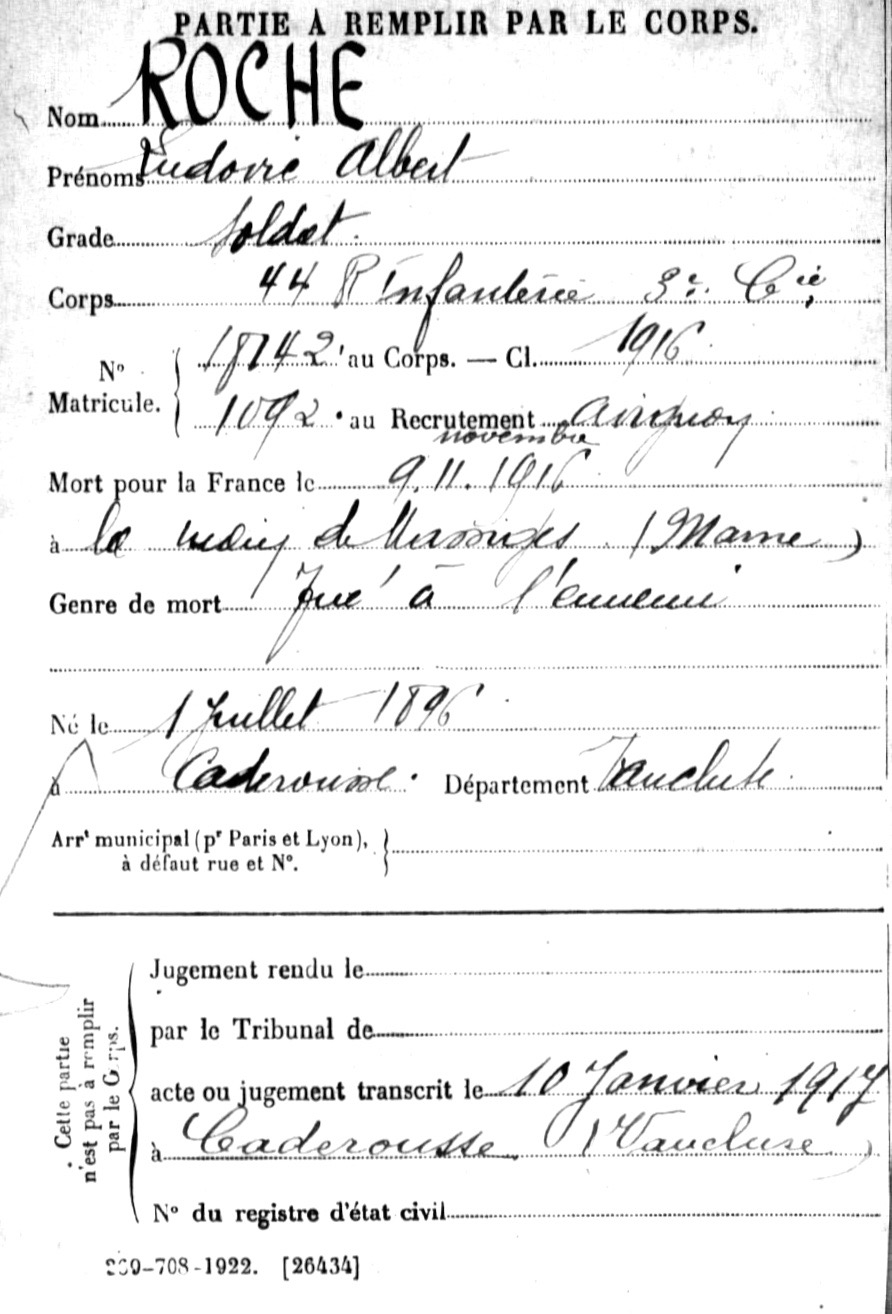 PARTIE À REMPLIR PAR LE CORPS.
Nom ROCHE
Prénoms Ludovic Albert
Grade Soldat.
Corps 44 R Infanterie 3e. Cie
N° Matricule. 18742 au Corps. — Cl. 1916
1092 au Recrutement Avignon
novembre
Mort pour la France le 9.11.1916
à la de (Marne)
Genre de mort Tué à l'ennemi
Né le 1 Juillet 1896
à Caderousse. Département Vaucluse.
Arrt municipal (pr Paris et Lyon),
à défaut rue et N°.
Cette partie
n'est pas à remplir
par le Corps.
Jugement rendu le
par le Tribunal de
acte ou jugement transcrit le 10 Janvier 1917
à Caderousse (Vaucluse)
N° du registre d'état civil
-708-1922. [26434]